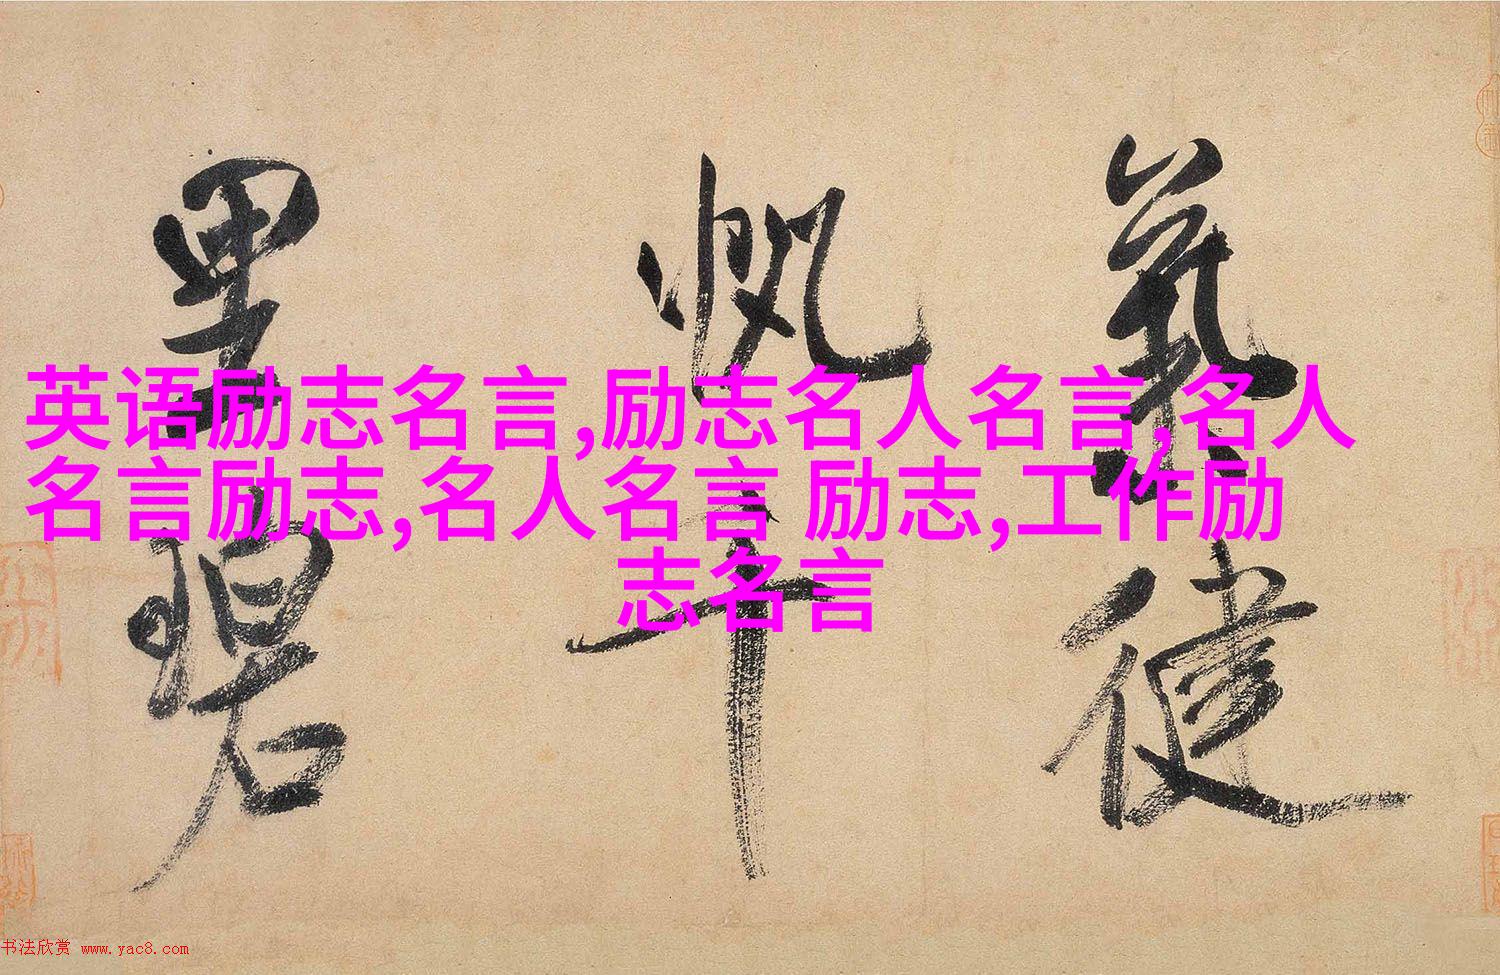 英语励志名言,励志名人名言,名人
名言励志,名人名言 励志,工作励
志名言
帆
千
里
碧
健
书法欣赏 www.yac8.com